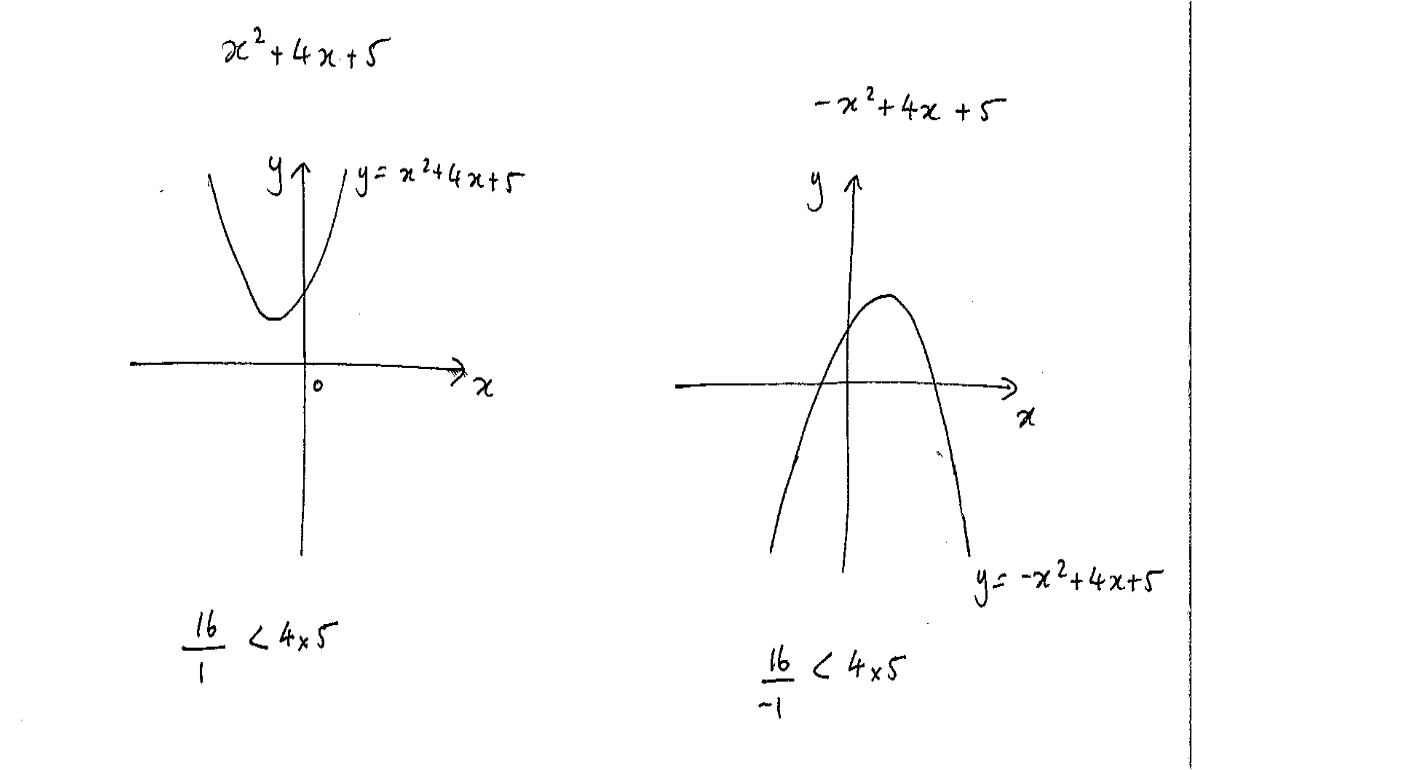 x²+4x+5
y
y= x²+4x+5
0
x
16/1 < 4×5
-x²+4x+5
y
x
y= -x²+4x+5
16/-1 < 4×5